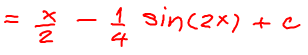 = x/2 - 1/4 sin(2x) + c